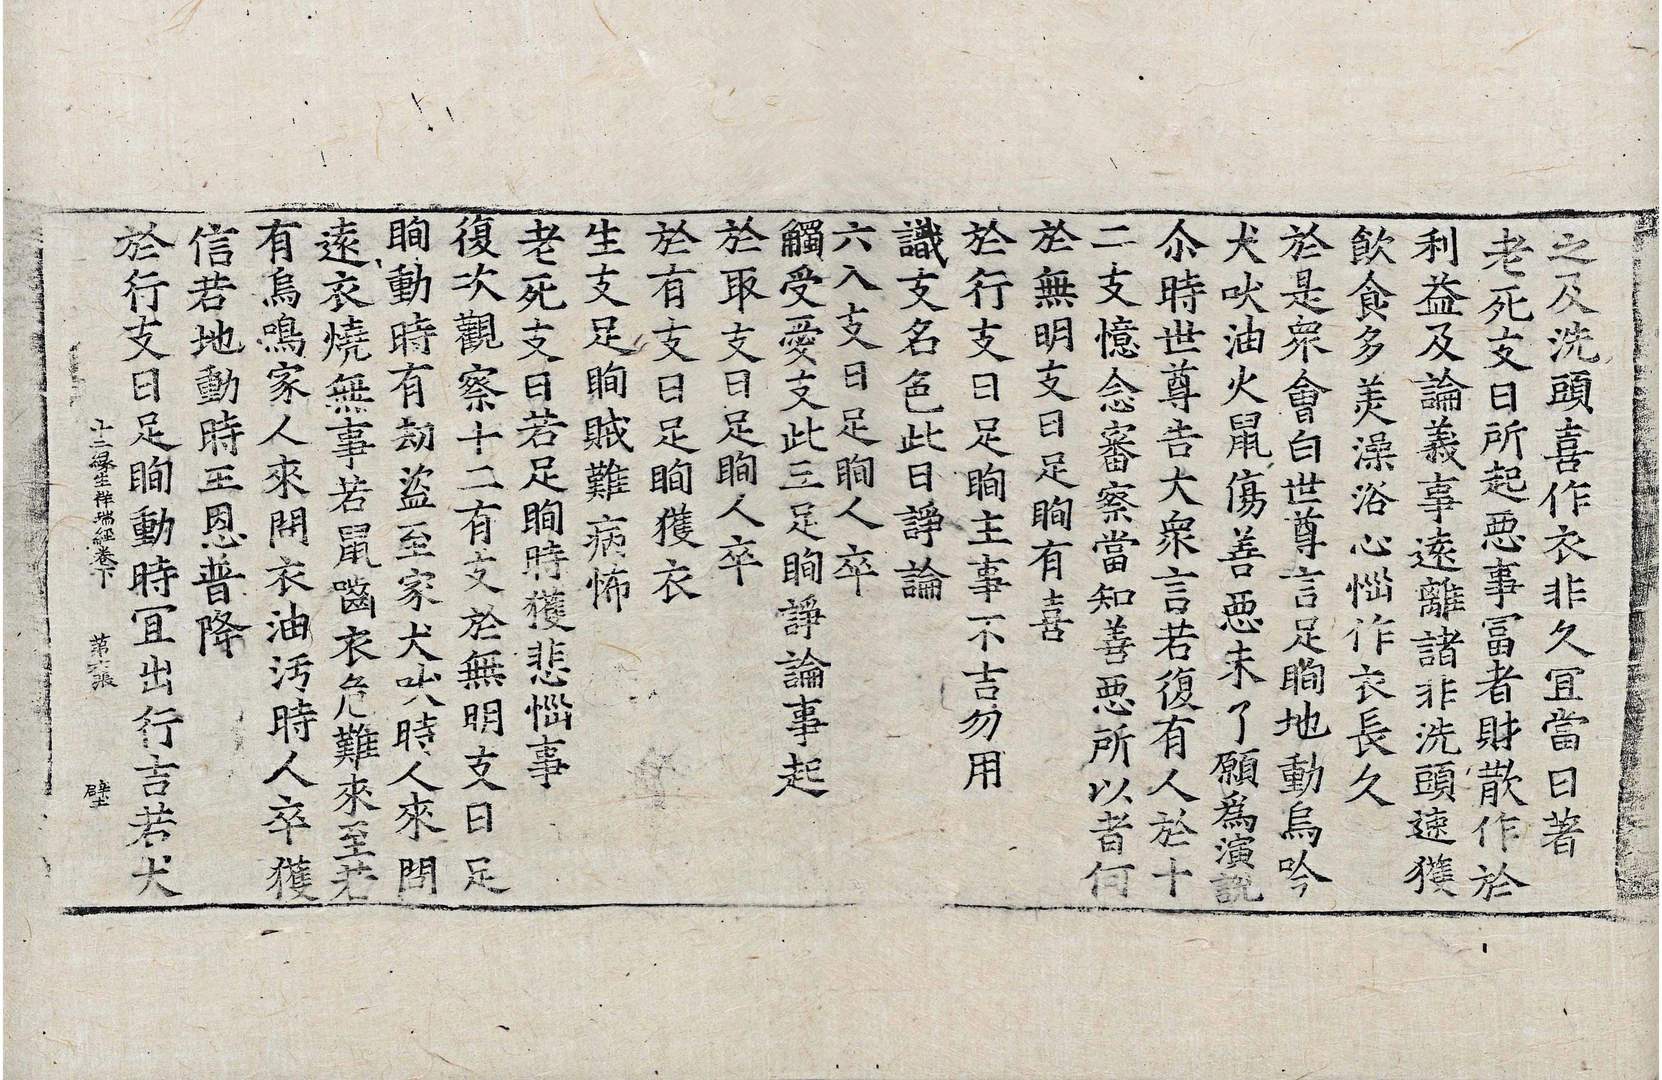 之及洗頭喜作衣非久冝當日著
老死支日所起惡事冨者財散作於
利益及論義事遠離諸非洗頭速獲
飲食多羙澡浴心惱作衣長久
於是衆會白世尊言足瞤地動烏吟
犬吠油火鼠傷善惡未了願為演說
尒時世尊告大衆言若復有人於十
二支憶念審察當知善惡所以者何
於無明支日足瞤有喜
於行支日足瞤主事不吉勿用
識支名色此日諍論
六入支日足瞤人卒
觸受愛支此三足瞤諍論事起
於取支日足瞤人卒
於有支日足瞤獲衣
生支足瞤賊難病怖
老死支日若足瞤時獲悲惱事
復次觀察十二有支於無明支日足
瞤動時有劫盜至家犬吠時人來問
遠衣燒無事若鼠嚙衣危難來至若
有烏鳴家人來問衣油污時人卒獲
信若地動時王恩普降
於行支日足瞤動時冝出行吉若犬
十二緣生祥瑞經卷下 第六張 壁